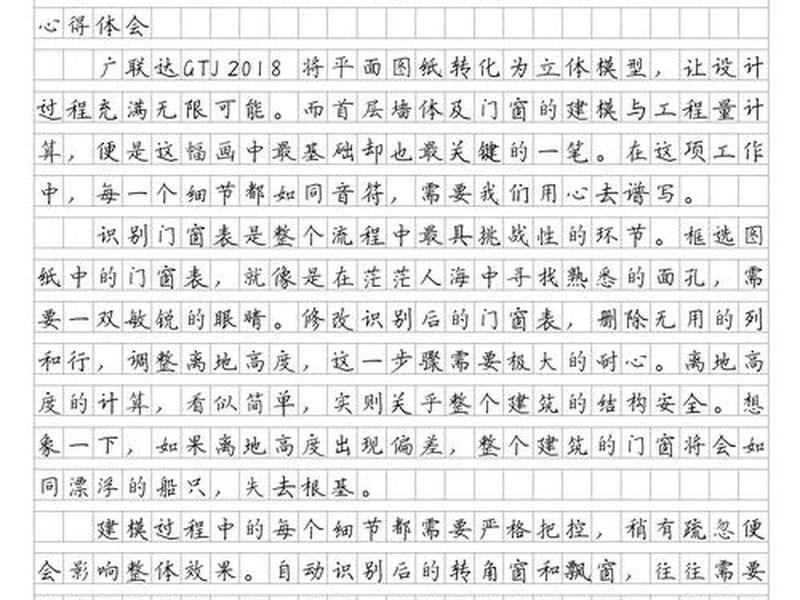 心得体会
广联达GTJ2018 将平面图纸转化为立体模型，让设计
过程充满无限可能。而首层墙体及门窗的建模与工程量计
算，便是这幅画中最基础却也最关键的一笔。在这项工作
中，每一个细节都如同音符，需要我们用心去谱写。
识别门窗表是整个流程中最具挑战性的环节。框选图
纸中的门窗表，就像是在茫茫人海中寻找熟悉的面孔，需
要一双敏锐的眼睛。修改识别后的门窗表，删除无用的列
和行，调整离地高度，这一步骤需要极大的耐心。离地高
度的计算，看似简单，实则关乎整个建筑的结构安全。想
象一下，如果离地高度出现偏差，整个建筑的门窗将会如
同漂浮的船只，失去根基。
建模过程中的每个细节都需要严格把控，稍有疏忽便
会影响整体效果。自动识别后的转角窗和飘窗，往往需要